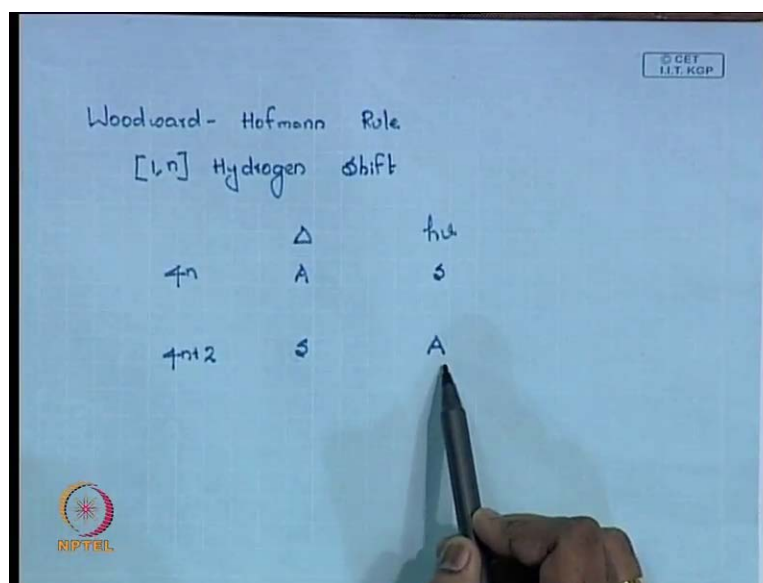 © CET
I.I.T. KGP
Woodward - Hofmann Rule
[1,n] Hydrogen Shift
Δ hν
4n A S
4n+2 S A
NPTEL